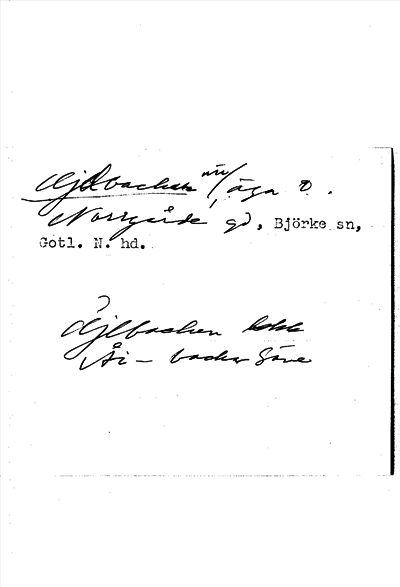 Ajlbacken, äga
Norrgårde gd, Björke sn,
Gotl. N. hd.
Ajlbacken
Åi – backar Säve